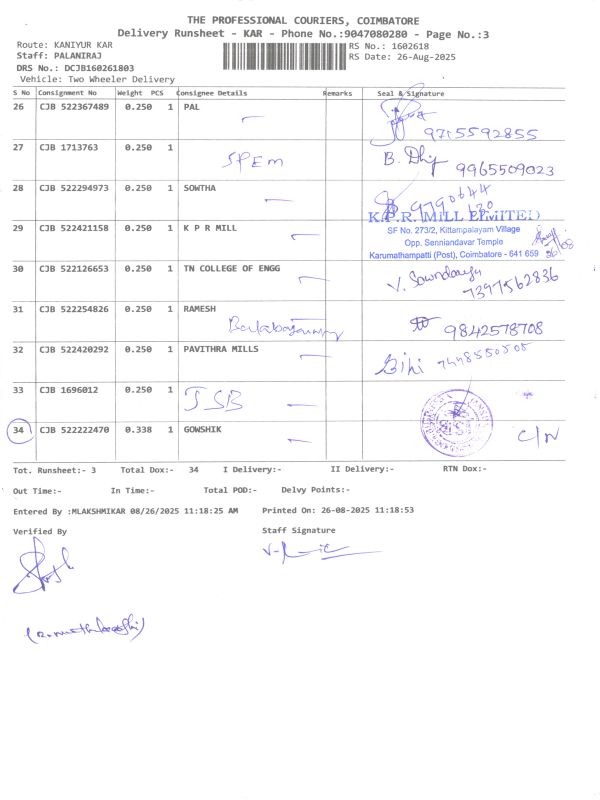 THE PROFESSIONAL COURIERS, COIMBATORE
Delivery Runsheet - KAR - Phone No.:9047080280 - Page No.:3
Route: KANIYUR KAR
RS No.: 1602618
Staff: PALANIRAJ
RS Date: 26-Aug-2025
DRS No.: DCJB160261803
Vehicle: Two Wheeler Delivery
S No Consignment No Weight PCS Consignee Details Remarks Seal & Signature
26 CJB 522367489 0.250 1 PAL
9715592855
27 CJB 1713763 0.250 1
SPEM B. Dhip 9965509023
28 CJB 522294973 0.250 1 SOWTHA
9790644
130
K.P.R. MILL LIMITED
29 CJB 522421158 0.250 1 K P R MILL
SF No. 273/2, Kittampalayam Village
Opp. Senniandavar Temple
Karumathampatti (Post), Coimbatore - 641 659
30 CJB 522126653 0.250 1 TN COLLEGE OF ENGG
V. Soundarya
7397562836
31 CJB 522254826 0.250 1 RAMESH
9842578708
32 CJB 522420292 0.250 1 PAVITHRA MILLS
7448550505
33 CJB 1696012 0.250 1
JSB
34 CJB 522222470 0.338 1 GOWSHIK
C/N
Tot. Runsheet:- 3 Total Dox:- 34 I Delivery:- II Delivery:- RTN Dox:-
Out Time:- In Time:- Total POD:- Delvy Points:-
Entered By :MLAKSHMIKAR 08/26/2025 11:18:25 AM Printed On: 26-08-2025 11:18:53
Verified By Staff Signature